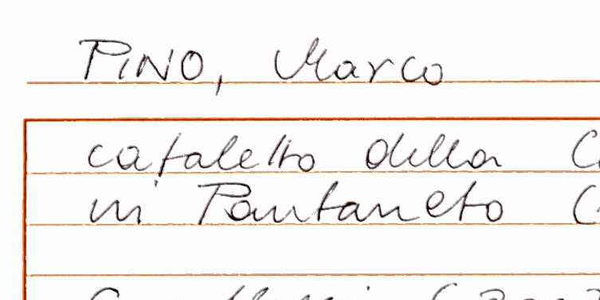 PINO, Marco
cataletto della
in Pantaneto